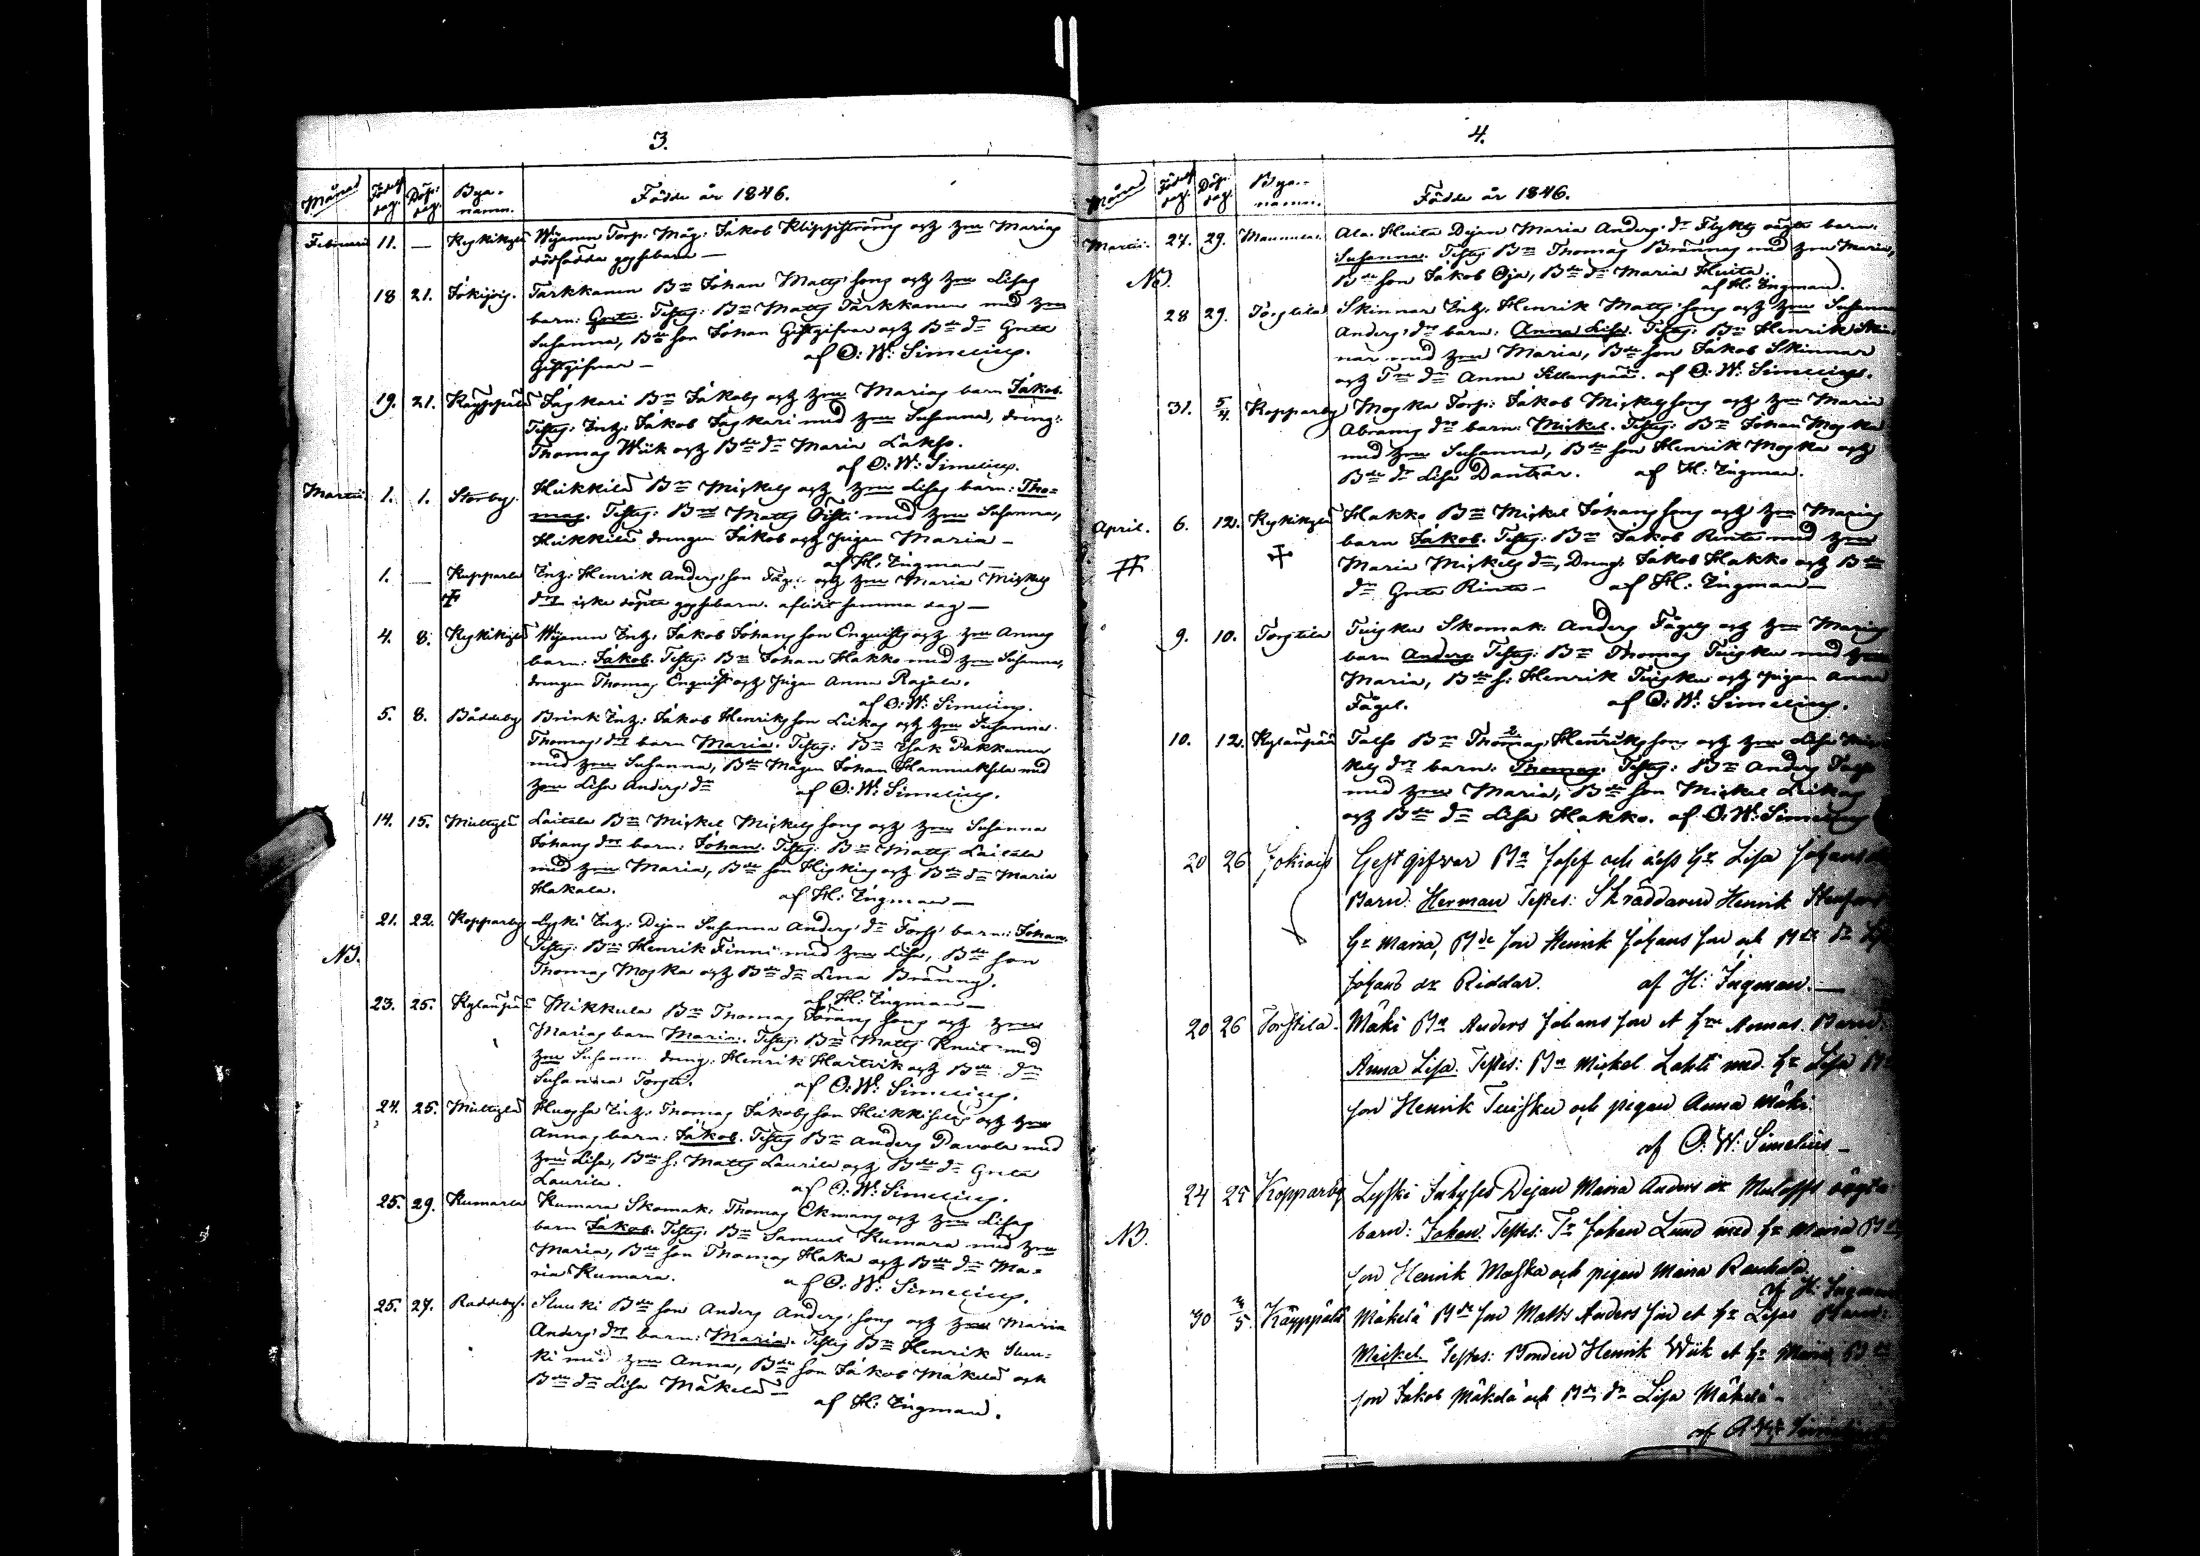 3.
Månad Födelse dag. Döp: dag. Bya- namn. Födde år 1846.
Februarii 11. — Kyskikylä Wijanen Torp. Måg: Jakob Klippström och hru Marias
dödfödda gossebarn —
18 21. Jokisivu. Tarkkanen Bn Johan Matts son och hru Lisas
barn: Greta. Testes: Bn Matts Tarkkanen med hru
Susanna, Bde son Johan Gästgifvar och Bde dr Greta
Gästgifvar — af O: W: Simelius.
19. 21. Käyppälä Jäskari Bn Jakobs och hru Marias barn Jakob.
Testes: Inh: Jakob Jäskari med hru Susanna, dreng:
Thomas Wiik och Bde dr Maria Lakso.
af O: W: Simelius.
Martii 1. 1. Storby. Heikkilä Bn Miskels och hru Lisas barn: Tho-
mas. Testes: Bn Matts Öisti med hru Susanna,
Heikkilä drengen Jakob och pigan Maria —
af H: Ingman —
1. — Kopparla Inh: Henrik Anders son och hru Maria Miskels
drs icke döpta gossebarn. aflidit samma dag —
4. 8. Kyskikylä Wijanen Inh: Jakob Johans son Enquists och hru Annas
barn: Jakob. Testes: Bn Johan Hakko med hru Susanna,
drengen Thomas Enquist och pigan Anna Rajala.
af O: W: Simelius.
5. 8. Båddeby Brink Inh: Jakob Henriks son Leikas och hru Susanna
Thomas drs barn Maria. Testes: Bn Isak Pakkanen
med hru Susanna, Bde Mågen Johan Hannuksela med
hru Lisa Anders dr af O: W: Simelius.
14. 15. Mullylä Laitala Bn Miskel Miskels sons och hru Susanna
Johans drs barn: Johan. Testes: Bn Matts Laitala
med hru Maria, Bde son Hiskias och Bde dr Maria
Hakala. af H: Ingman —
21. 22. Kopparby Lyski Inh: Dejan Susanna Anders dr Torss barn: Johan.
NB. Testes: Bn Henrik Finni med hru Lisa, Bde son
Thomas Moska och Bde dr Lena Bränns.
af H: Ingman —
23. 25. Kylänpää Mikkula Bn Thomas Görans sons och hrus
Marias barn Maria. Testes: Bn Matts Knut med
hru Susanna dreng: Henrik Hartvik och Bde dr
Susanna Torsti. af O: W: Simelius.
24. 25. Mullylä Huopsa Inh: Thomas Jakobs son Heikkiläs och hru
Annas barn: Jakob. Testes Bn Anders Pavola med
hru Lisa, Bde s: Matts Laurila och Bde dr Greta
Laurila. af O: W: Simelius.
25. 29. Kumarla Kumara Skomak: Thomas Ekmans och hru Lisas
barn Jakob. Testes: Bn Samuel Kumara med hru
Maria, Bde son Thomas Haka och Bde dr Ma-
ria Kumara. af O: W: Simelius.
25. 27. Råddeby. Sluuki Bde son Anders Anders sons och hru Maria
Anders drs barn: Maria. Testes Bn Henrik Sluu-
ki med hru Anna, Bde son Jakob Mäkelä och
Bde dr Lisa Mäkelä —
af H: Ingman.
4.
Månad Födelse dag. Döp. dag. Bya- namn. Födde år 1846.
Martii. 27. 29. Maunula. Ala. Huita Dejan Maria Anders dr Flykts oägta barn:
NB. Susanna. Testes Bn Thomas Bränna med hru Maria,
Bde son Jakob Oja, Bde dr Maria Huita.
af H: Ingman.
28 29. Torstila Skinnar Inh: Henrik Matts sons och hru Susanna
Anders drs barn: Anna Lisa. Testes: Bn Henrik Skin-
nar med hru Maria, Bde son Jakob Skinnar
och Tne dr Anna Sillanpää. af O: W: Simelius.
31. 5/4. Kopparby Moska Torp: Jakob Miskels sons och hru Maria
Abrams drs barn: Miskel. Testes: Bn Johan Moska
med hru Susanna, Bde son Henrik Moska och
Bde dr Lisa Dantsar. af H: Ingman.
April. 6. 12. Kyskikylä Hakko Bn Miskel Johans sons och hru Marias
barn Jakob. Testes: Bn Jakob Rinta med hru
Maria Miskels dr, Dreng: Jakob Hakko och Bde
dr Greta Rinta — af H: Ingman —
9. 10. Torstila Tuisku Skomak: Anders Fågels och hru Marias
barn Anders. Testes: Bn Thomas Tuisku med hru
Maria, Bde s: Henrik Tuisku och pigan Anna
Fågel. af O: W: Simelius.
10. 12. Kylänpää Bn Thomas Henriks sons och hru Lisa Mis-
kels drs barn: Thomas. Testes: Bn Anders
med hru Maria, Bde son Miskel Leikas
och Bde dr Lisa Hakko. af O: W: Simelius
20 26 Jokiais Gestgifvar Bn Josef och dess hr Lisa Johans
Barn: Herman Testes: Skräddaren Henrik
hr Maria, Bde son Henrik Johans son och Bde dr
Johans dr Riddar. af H: Ingman. —
20 26 Torstila. Mäki Bn Anders Johans son et hru Annas Barn:
Anna Lisa. Testes: Bn Miskel Lahti med hr Lisa
son Henrik Tuisku och pigan Anna Mäki.
af O: W: Simelius —
24 25 Kopparby Lyski Inhyses Dejan Maria Anders dr oägta
NB. barn: Johan. Testes: Tr Johan Lund med hr Maria
son Henrik Moska och pigan Maria
af H: Ingman
30 3/5 Käyppälä Mäkelä Bde son Matts Anders son et hr Lisas Barn:
Miskel. Testes: Bonden Henrik Wiik et hr Maria,
son Jakob Mäkelä och Bde dr Lisa Mäkelä —
af